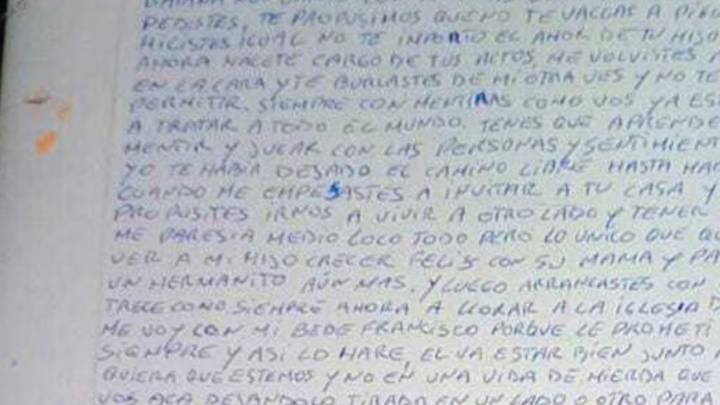 PEDISTES, TE PROPUSIMOS QUE NO TE VALLAS A
HICISTES IGUAL NO TE IMPORTO EL AMOR DE TU HIJO
AHORA HACETE CARGO DE TUS ACTOS, ME VOLVISTES A
EN LA CARA Y TE BURLASTES DE MI OTRA VES Y NO TE
PERMITIR. SIEMPRE CON MENTIRAS COMO VOS YA ES
A TRATAR A TODO EL MUNDO. TENES QUE APRENDE
MENTIR Y JUGAR CON LAS PERSONAS Y SENTIMIENT
YO TE HABIA DESADO EL CAMINO LIBRE HASTA HAC
CUANDO ME EMPESASTES A INVITAR A TU CASA Y
PROPUSITES IRNOS A VIVIR A OTRO LADO Y TENER
ME PARESIA MEDIO LOCO TODO PERO LO UNICO QUE QU
VER A MI HIJO CRECER FELIS CON SU MAMA Y PA
UN HERMANITO AÚN MAS. Y LUEGO ARRANCASTES CON
TRETE COMO SIEMPRE AHORA A LLORAR A LA IGLESIA
ME VOY CON MI BEBE FRANCISCO PORQUE LE PROMETI
SIEMPRE Y ASI LO HARE, EL VA ESTAR BIEN JUNTO
QUIERA QUE ESTEMOS Y NO EN UNA VIDA DE MIERDA QUE
VOS ACA DESANDOLO TIRADO EN UN LADO O OTRO PARA